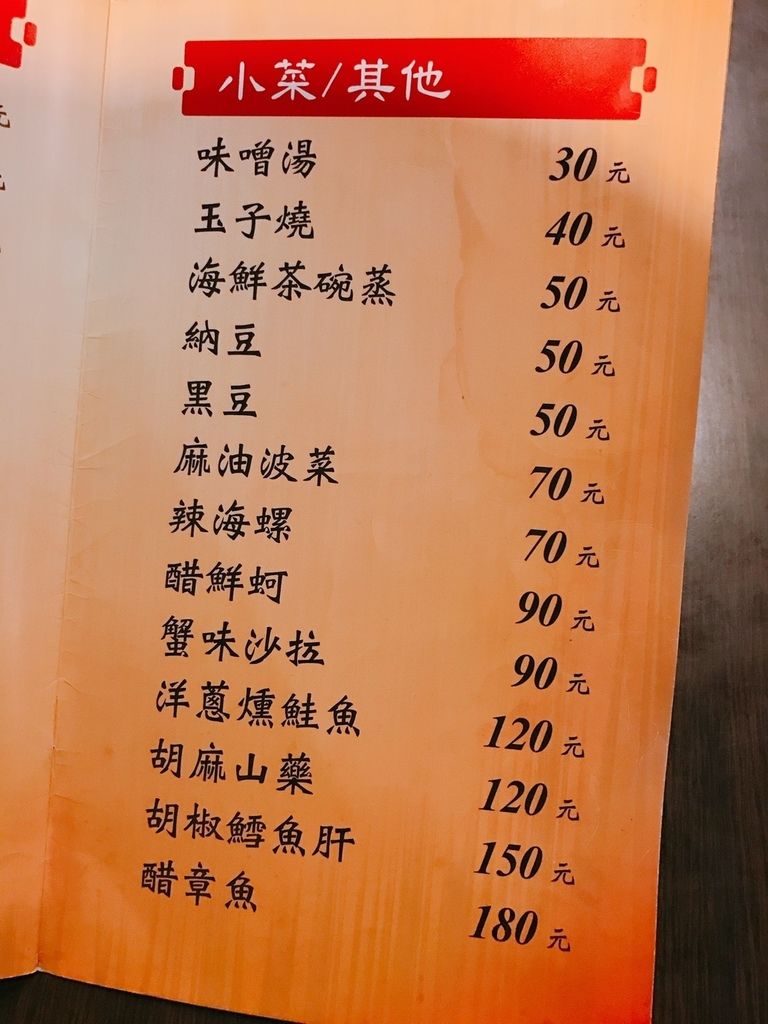 小菜/其他
味噌湯 30元
玉子燒 40元
海鮮茶碗蒸 50元
納豆 50元
黑豆 50元
麻油波菜 70元
辣海螺 70元
醋鮮蚵 90元
蟹味沙拉 90元
洋蔥燻鮭魚 120元
胡麻山藥 120元
胡椒鱈魚肝 150元
醋章魚 180元
元
元